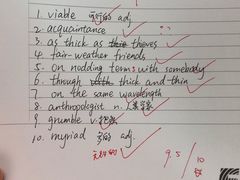 1. viable 可行的 adj.
2. acquaintance
3. as thick as thieves
4. fair-weather friends
5. on nodding terms with somebody
6. through thick and thin
7. on the same wavelength
8. anthropologist n. 人类学家
9. grumble v.
10. myriad adj.
无数的
9.5 / 10